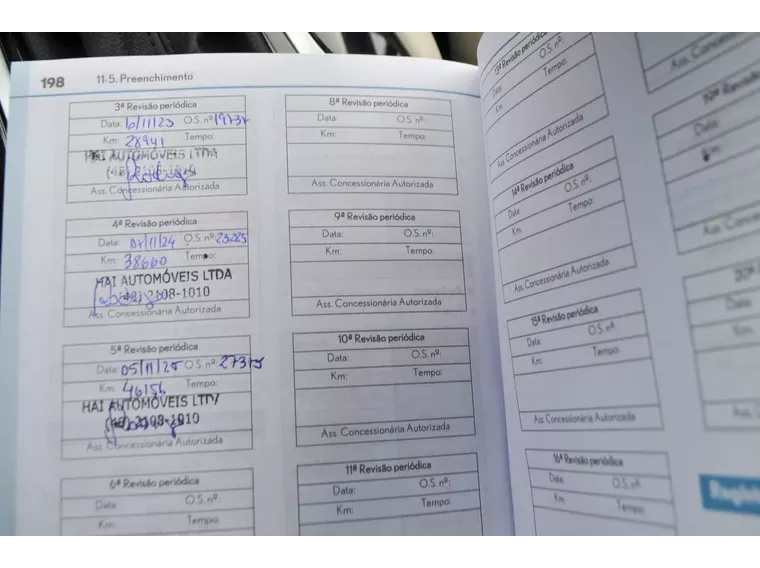 198 11-5. Preenchimento
3ª Revisão periódica
Data: 6/11/23 O.S. nº: 19737
Km: 28941 Tempo:
HAI AUTOMÓVEIS LTDA
Ass. Concessionária Autorizada
4ª Revisão periódica
Data: 07/11/24 O.S. nº: 23225
Km: 38600 Tempo:
HAI AUTOMÓVEIS LTDA
(48) 2108-1010
Ass. Concessionária Autorizada
5ª Revisão periódica
Data: 05/11/25 O.S. nº: 27375
Km: 46156 Tempo:
HAI AUTOMÓVEIS LTDA
(48) 2108-1010
Ass. Concessionária Autorizada
6ª Revisão periódica
Data: O.S. nº:
Km: Tempo:
8ª Revisão periódica
Data: O.S. nº:
Km: Tempo:
Ass. Concessionária Autorizada
9ª Revisão periódica
Data: O.S. nº:
Km: Tempo:
Ass. Concessionária Autorizada
10ª Revisão periódica
Data: O.S. nº:
Km: Tempo:
Ass. Concessionária Autorizada
11ª Revisão periódica
Data: O.S. nº:
Km: Tempo:
13ª Revisão periódica
Data: O.S. nº:
Km: Tempo:
Ass. Concessionária Autorizada
14ª Revisão periódica
Data: O.S. nº:
Km: Tempo:
Ass. Concessionária Autorizada
15ª Revisão periódica
Data: O.S. nº:
Km: Tempo:
Ass. Concessionária Autorizada
16ª Revisão periódica
Data: O.S. nº:
Km: Tempo:
19ª Revisão
Data:
Km:
20ª
Data:
Km: